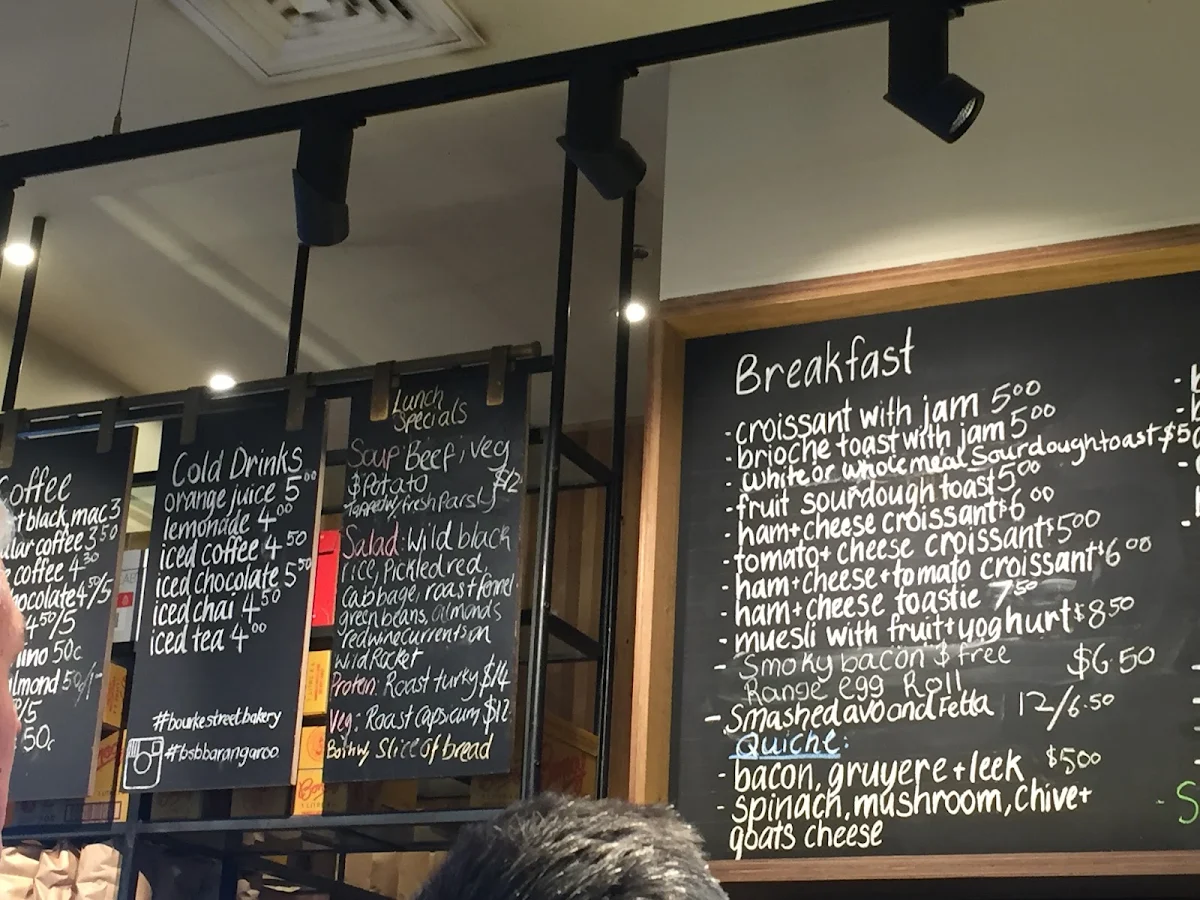 Coffee
black, mac 3
coffee 3 50
coffee 4 30
4 50/5
4 50/5
50c
almond
/5
50c
Cold Drinks
orange juice 5 00
lemonade 4 00
iced coffee 4 50
iced chocolate 5 50
iced chai 4 50
iced tea 4 00
#bourkestreetbakery
#bsbbarangaroo
Lunch
Specials
Soup Beef, Veg
$ Potato $12
Salad: Wild black
rice, Pickled red,
Cabbage, roast fennel,
green beans, almonds
redwine currents on
Wild Rocket
Protein: Roast turky $14
Veg: Roast Capsicum $12
Both w/ Slice of bread
Breakfast
- croissant with jam 5 00
- brioche toast with jam 5 00
- white or wholemeal Sourdough toast $5
- fruit sourdough toast 5 00
- ham + cheese croissant $6 00
- tomato + cheese croissant $5 00
- ham + cheese + tomato croissant $6 00
- ham + cheese toastie 7 50
- muesli with fruit + yoghurt $8 50
- Smoky bacon $ free $6.50
Range egg Roll
- Smashed avo and Fetta 12/6.50
Quiche:
- bacon, gruyere + leek $5 00
- spinach, mushroom, chive +
goats cheese